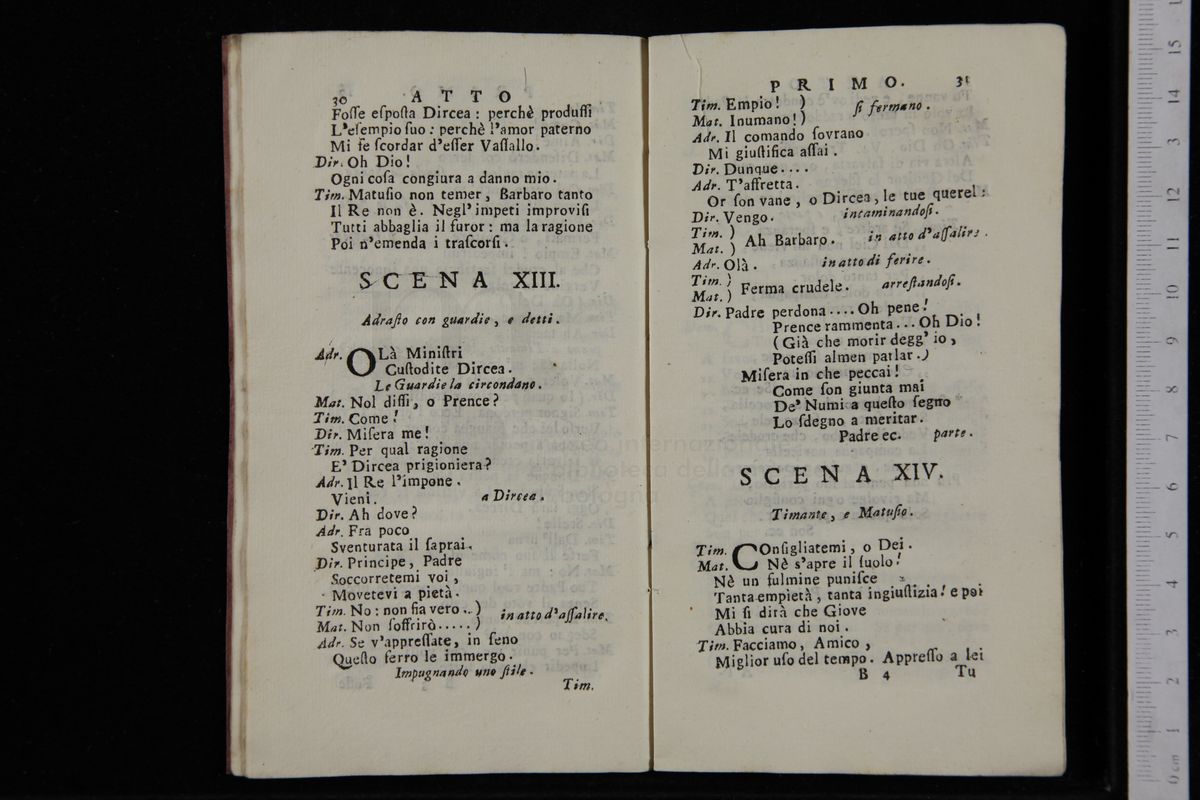 30 ATTO
Foſſe eſpoſta Dircea : perchè produſſi
L'eſempio ſuo : perchè l'amor paterno
Mi fe ſcordar d'eſſer Vaſſallo.
Dir. Oh Dio !
Ogni coſa congiura a danno mio.
Tim. Matuſio non temer, Barbaro tanto
Il Re non è. Negl'impeti improviſi
Tutti abbaglia il furor : ma la ragione
Poi n'emenda i traſcorſi.
SCENA XIII.
Adraſto con guardie, e detti.
Adr. OLà Miniſtri
Cuſtodite Dircea.
Le Guardie la circondano.
Mat. Nol diſſi, o Prence ?
Tim. Come !
Dir. Miſera me !
Tim. Per qual ragione
E' Dircea prigioniera ?
Adr. Il Re l'impone.
Vieni. a Dircea.
Dir. Ah dove ?
Adr. Fra poco
Sventurata il ſaprai.
Dir. Principe, Padre
Soccorretemi voi,
Movetevi a pietà.
Tim. No : non fia vero .. ) in atto d'aſſalire.
Mat. Non ſoffrirò ..... )
Adr. Se v'appreſſate, in ſeno
Queſto ferro le immergo.
Impugnando uno ſtile.
Tim.
PRIMO. 31
Tim. Empio ! ) ſi fermano.
Mat. Inumano ! )
Adr. Il comando ſovrano
Mi giuſtifica aſſai.
Dir. Dunque ....
Adr. T'affretta.
Or ſon vane, o Dircea, le tue querele
Dir. Vengo. incaminandoſi.
Tim. ) Ah Barbaro. in atto d'aſſalire.
Mat. )
Adr. Olà. in atto di ferire.
Tim. ) Ferma crudele. arreſtandoſi.
Mat. )
Dir. Padre perdona .... Oh pene !
Prence rammenta ... Oh Dio !
( Già che morir degg' io,
Poteſſi almen parlar. )
Miſera in che peccai !
Come ſon giunta mai
De' Numi a queſto ſegno
Lo ſdegno a meritar.
Padre ec. parte.
SCENA XIV.
Timante, e Matuſio.
Tim. COnſigliatemi, o Dei.
Mat. Nè s'apre il ſuolo !
Nè un fulmine puniſce
Tanta empietà, tanta ingiuſtizia ! e poi
Mi ſi dirà che Giove
Abbia cura di noi.
Tim. Facciamo, Amico,
Miglior uſo del tempo. Appreſſo a lei
B 4 Tu